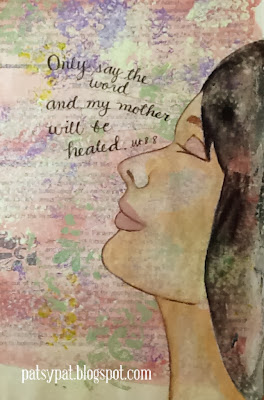 Only say the
word
and my mother
will be
healed. Mt 8:8
patsypat.blogspot.com